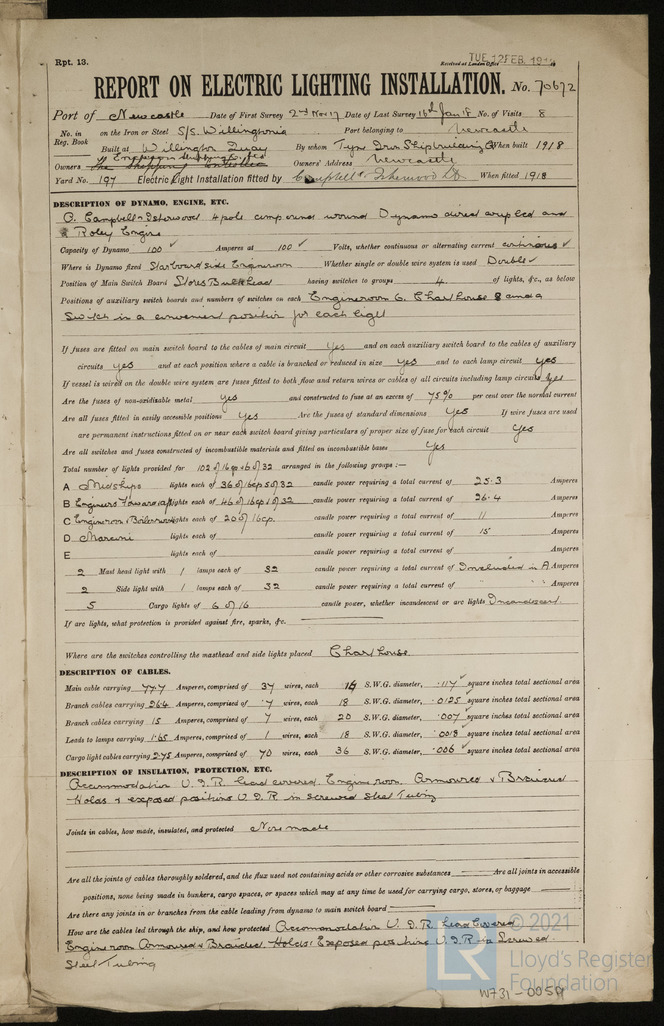 Rpt. 13.
TUE. 12 FEB. 191
Received at London Office
REPORT ON ELECTRIC LIGHTING INSTALLATION. No. 70672
Port of Newcastle Date of First Survey 2nd Nov 17 Date of Last Survey 16th Jan 18 No. of Visits 8
No. in Reg. Book on the Iron or Steel S/S. Willingtonia Port belonging to Newcastle
Built at Willington Quay By whom Tyne Iron Shipbuilding Co When built 1918
Owners Owners' Address Newcastle
Yard No. 197 Electric Light Installation fitted by Campbell & Isherwood Ld When fitted 1918
DESCRIPTION OF DYNAMO, ENGINE, ETC.
Campbell & Isherwood 4 pole compound wound Dynamo direct coupled and
a Roley Engine
Capacity of Dynamo 100 Amperes at 100 Volts, whether continuous or alternating current continuous
Where is Dynamo fixed Starboard side Engineroom Whether single or double wire system is used Double
Position of Main Switch Board Stores Bulkhead having switches to groups 4. of lights, &c., as below
Positions of auxiliary switch boards and numbers of switches on each Engineroom 6. Charthouse 8 and a
Switch in a convenient position for each light
If fuses are fitted on main switch board to the cables of main circuit yes and on each auxiliary switch board to the cables of auxiliary
circuits yes and at each position where a cable is branched or reduced in size yes and to each lamp circuit yes
If vessel is wired on the double wire system are fuses fitted to both flow and return wires or cables of all circuits including lamp circuits yes
Are the fuses of non-oxidizable metal yes and constructed to fuse at an excess of 75% per cent over the normal current
Are all fuses fitted in easily accessible positions Yes Are the fuses of standard dimensions Yes If wire fuses are used
are permanent instructions fitted on or near each switch board giving particulars of proper size of fuse for each circuit Yes
Are all switches and fuses constructed of incombustible materials and fitted on incombustible bases Yes
Total number of lights provided for 102 of 16cp & 6 of 32 arranged in the following groups :—
A Midships lights each of 36 of 16cp 5 of 32 candle power requiring a total current of 25.3 Amperes
B Engineers Forward & aft lights each of 46 of 16cp 1 of 32 candle power requiring a total current of 26.4 Amperes
C Engineroom & Boilerroom lights each of 20 of 16cp. candle power requiring a total current of 11 Amperes
D Marconi lights each of candle power requiring a total current of 15 Amperes
E lights each of candle power requiring a total current of Amperes
2 Mast head light with 1 lamps each of 32 candle power requiring a total current of Included in A Amperes
2 Side light with 1 lamps each of 32 candle power requiring a total current of " " Amperes
5 Cargo lights of 6 of 16 candle power, whether incandescent or arc lights Incandescent.
If arc lights, what protection is provided against fire, sparks, &c.
Where are the switches controlling the masthead and side lights placed Charthouse
DESCRIPTION OF CABLES.
Main cable carrying 77.7 Amperes, comprised of 37 wires, each 16 S.W.G. diameter, .117 square inches total sectional area
Branch cables carrying 26.4 Amperes, comprised of 7 wires, each 18 S.W.G. diameter, .0125 square inches total sectional area
Branch cables carrying 15 Amperes, comprised of 7 wires, each 20 S.W.G. diameter, .007 square inches total sectional area
Leads to lamps carrying 1.65 Amperes, comprised of 1 wires, each 18 S.W.G. diameter, .0018 square inches total sectional area
Cargo light cables carrying 2.75 Amperes, comprised of 70 wires, each 36 S.W.G. diameter, .006 square inches total sectional area
DESCRIPTION OF INSULATION, PROTECTION, ETC.
Accommodation V.I.R. lead covered. Engineroom Armoured & Braided
Holds & exposed positions V.I.R in screwed Steel Tubing
Joints in cables, how made, insulated, and protected None made
Are all the joints of cables thoroughly soldered, and the flux used not containing acids or other corrosive substances Are all joints in accessible
positions, none being made in bunkers, cargo spaces, or spaces which may at any time be used for carrying cargo, stores, or baggage
Are there any joints in or branches from the cable leading from dynamo to main switch board
How are the cables led through the ship, and how protected Accommodation V.I.R. Lead Covered
Engineroom Armoured & Braided Holds & Exposed positions V.I.R in Screwed
Steel Tubing
LR © 2021
Lloyd's Register
Foundation
W731-0059